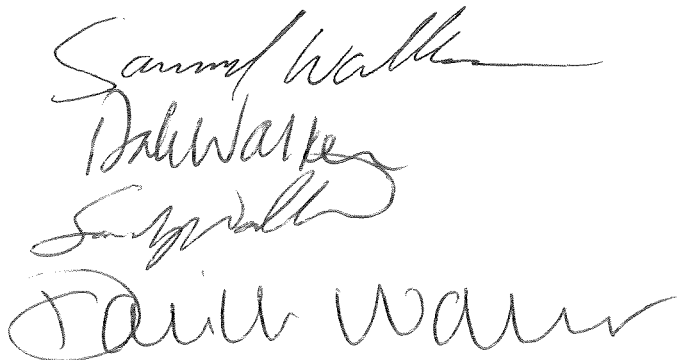 Samuel Walker
Dale Walker
Sandy Walker
Walker